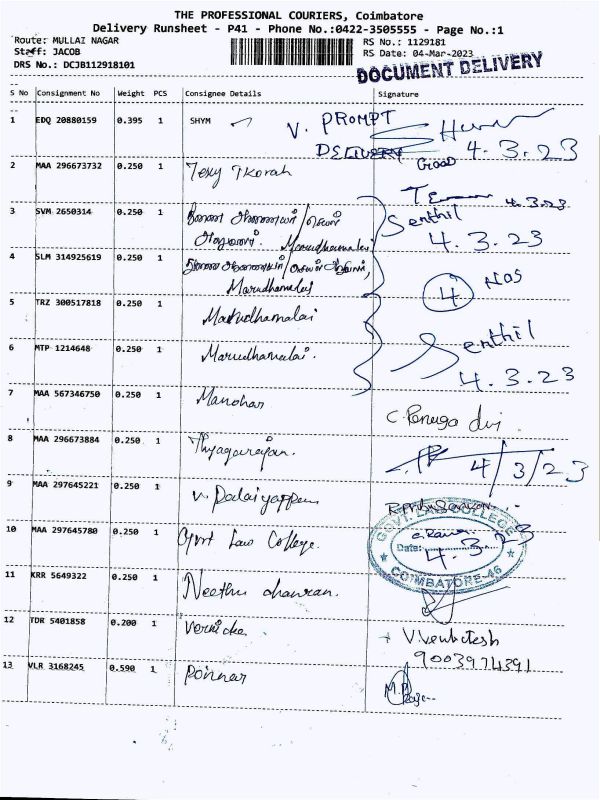 THE PROFESSIONAL COURIERS, Coimbatore
Delivery Runsheet - P41 - Phone No.:0422-3505555 - Page No.:1
Route: MULLAI NAGAR
RS No.: 1129181
Staff: JACOB
RS Date: 04-Mar-2023
DRS No.: DCJB112918101
DOCUMENT DELIVERY
S No Consignment No Weight PCS Consignee Details Signature
1 EDQ 20880159 0.395 1 SHYM
V. PROMPT
DELIVERY
Good
4.3.23
2 MAA 296673732 0.250 1
4.3.23
3 SVM 2650314 0.250 1
Marudhamalai
Senthil
4.3.23
4 SLM 314925619 0.250 1
Marudhamalai
4 NOS
5 TRZ 300517818 0.250 1 Marudhamalai
6 MTP 1214648 0.250 1 Marudhamalai.
Senthil
4.3.23
7 MAA 567346750 0.250 1 Manohar
8 MAA 296673884 0.250 1 Thyagarajan.
4/3/23
9 MAA 297645221 0.250 1
10 MAA 297645780 0.250 1 Govt Law College.
GOVT. LAW COLLEGE
Date:
4.3.23
COIMBATORE-46
11 KRR 5649322 0.250 1 Neethu
12 TDR 5401858 0.200 1
V Venkatesh
9003974391
13 VLR 3168245 0.590 1